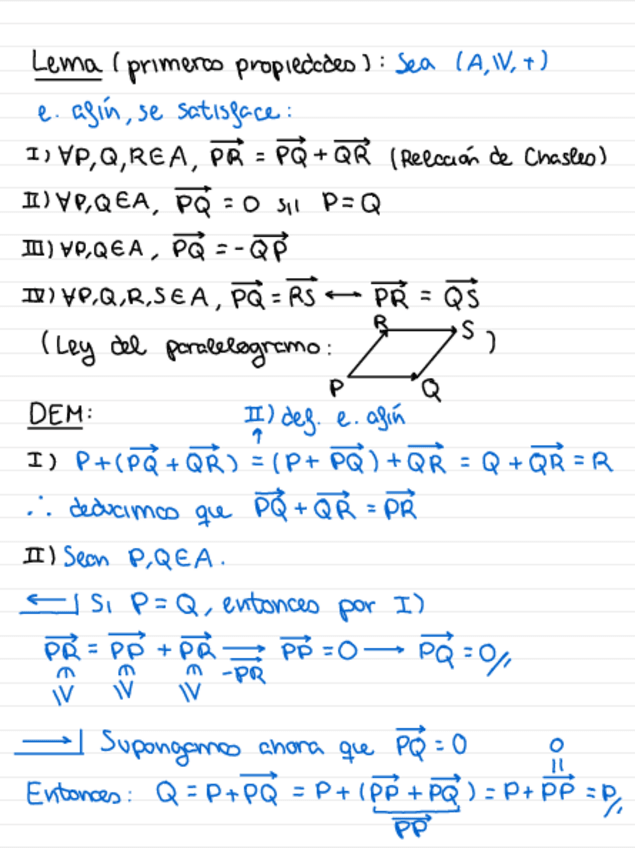 Lema (primeras propiedades): Sea (A, 𝕍, +)
e. afín, se satisface:
I) ∀P,Q,R∈A, \overrightarrow{PR} = \overrightarrow{PQ} + \overrightarrow{QR} (Relación de Chasles)
II) ∀P,Q∈A, \overrightarrow{PQ} = 0 sii P=Q
III) ∀P,Q∈A, \overrightarrow{PQ} = -\overrightarrow{QP}
IV) ∀P,Q,R,S∈A, \overrightarrow{PQ} = \overrightarrow{RS} ⟷ \overrightarrow{PR} = \overrightarrow{QS}
(Ley del paralelogramo: R S P Q)
DEM: II) def. e. afín
↑
I) P+(\overrightarrow{PQ} + \overrightarrow{QR}) = (P+ \overrightarrow{PQ}) + \overrightarrow{QR} = Q + \overrightarrow{QR} = R
∴ deducimos que \overrightarrow{PQ} + \overrightarrow{QR} = \overrightarrow{PR}
II) Sean P,Q∈A.
←| Si P = Q, entonces por I)
\overrightarrow{PR} = \overrightarrow{PP} + \overrightarrow{PR} ⟶ \overrightarrow{PP} = 0 ⟶ \overrightarrow{PQ} = 0//
∈ ∈ ∈ -\overrightarrow{PR}
𝕍 𝕍 𝕍
→| Supongamos ahora que \overrightarrow{PQ} = 0
0
=
Entonces: Q = P+\overrightarrow{PQ} = P+(\overrightarrow{PP} + \overrightarrow{PQ}) = P+\overrightarrow{PP} = P//
\overrightarrow{PP}